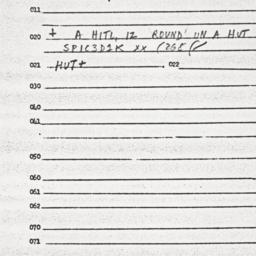 011
020 + A HITL, 12 ROUND' UN A HUT
SPIC3D1K XX (25E(
021 HUT+ 022
030
040
041
050
060
061
062
070
071